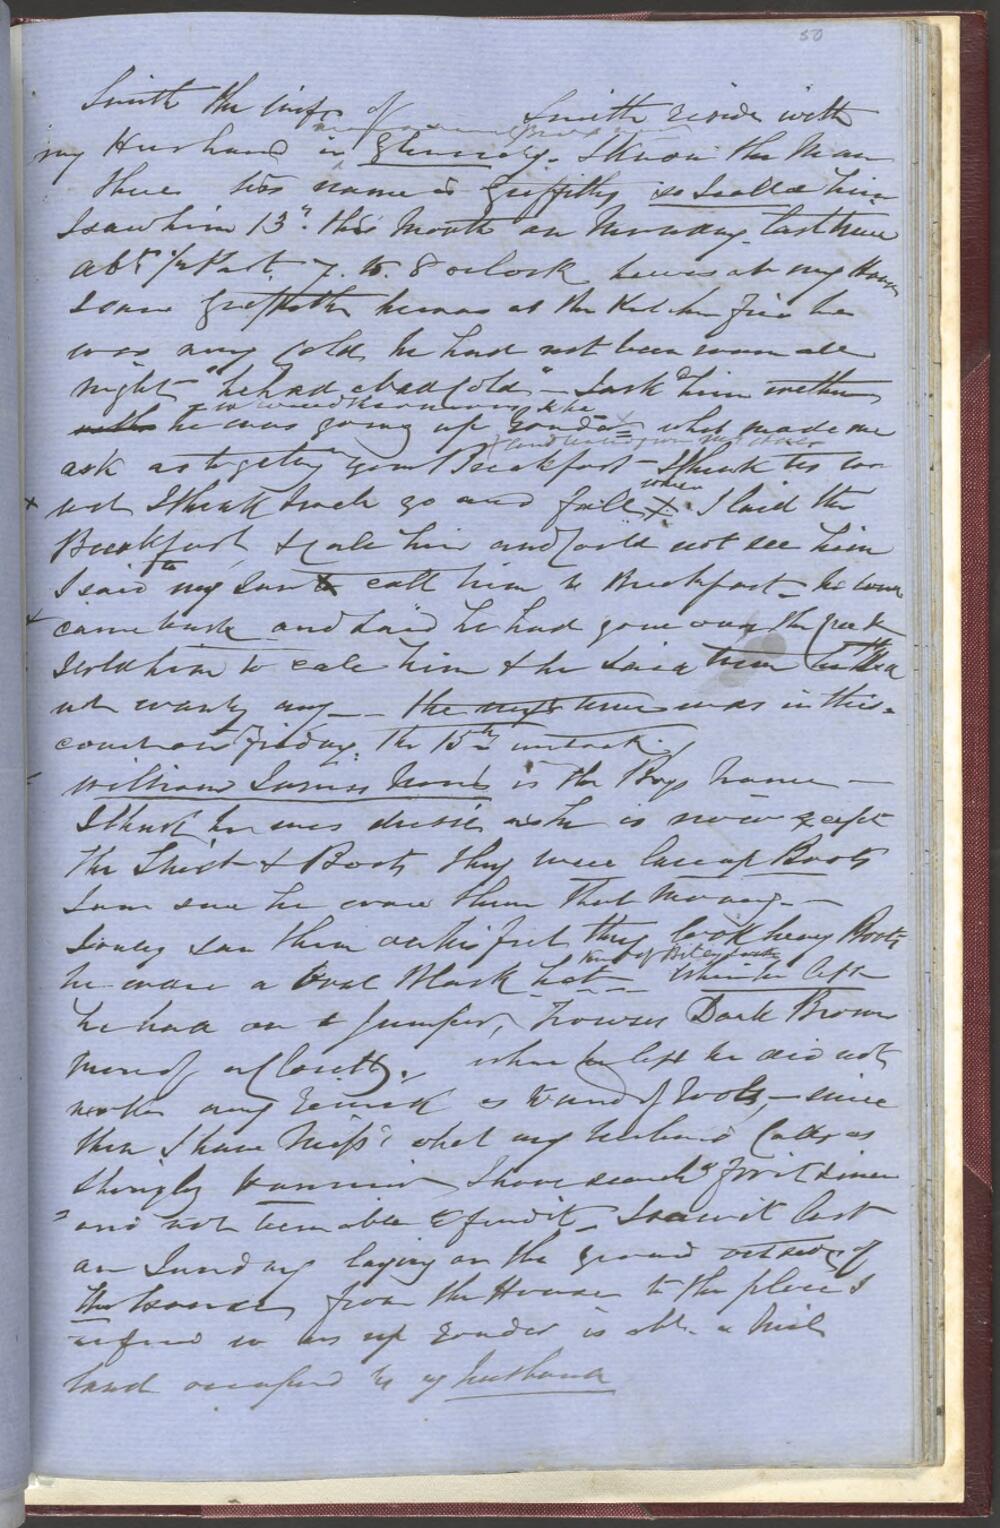 50
Smith the wife of Smith reside with
my Husband in Glenorchy. I know the Man
there his name is Griffiths so I called him
I saw him 13th this Month on Monday last
abt 1/2 Past 7 to 8 oclock he was at my House
I saw Griffiths he was at the Kitchen fire he
was very Cold he had not been warm all
night "he had a bad Cold" – I ask'd him wether
he was going up Yonder what made me
ask as to geting your Breakfast – I think
not I think back go and fall I laid the
Breakfast & call him and Could not see him
I said to my Son call him to Breakfast – he
came back and said he had gone over the Creek
I told him to call him & he said
not want any – the was in this
court on Friday the 15th instant
William James is the Boys name –
I think he was dressed as he is now except
the Shirt & Boots they were lace up Boots
I am sure he wore them that Morng –
I only saw them on his feet they look heavy Boots
he wore a Oval Black hat – when he left
he had on a Jumper, Trowsers Dark Brown
when he left he did not
make any remark as to – since
then I have Miss'd what my husband Calls a
Shingling Hammer I have search'd for it since
and not been able to find it – I saw it last
on Sunday laying on the ground outside of
the house from the House to the place I
refered to as up Yonder is abt. a Mile
land occupied by my husband